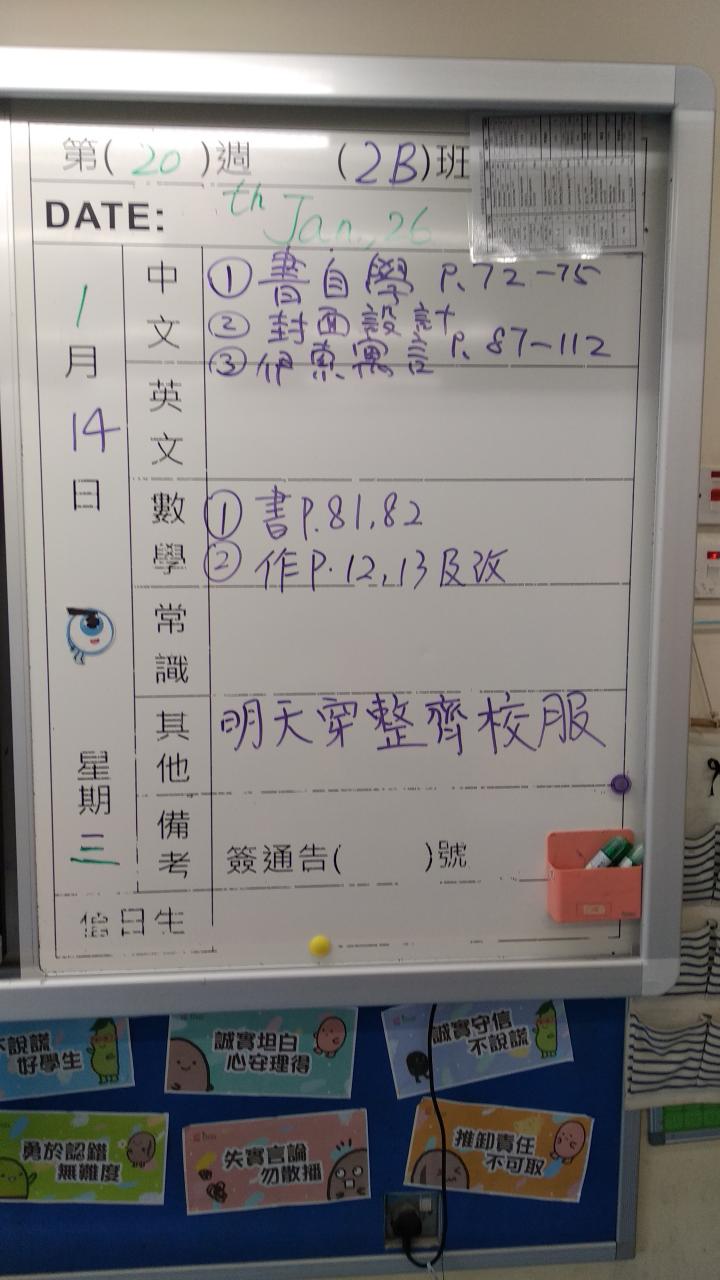 第(20)週 (2B)班
DATE: th Jan., 26
1月14日
星期三
中文
① 書自學 P.72-75
② 封面設計
③ 伊索寓言 P.87-112
英文
數學
① 書P.81,82
② 作P.12,13及改
常識
其他
明天穿整齊校服
備考
簽通告( )號
值日生
不說謊
好學生
誠實坦白
心安理得
誠實守信
不說謊
勇於認錯
無難度
失實言論
勿散播
推卸責任
不可取